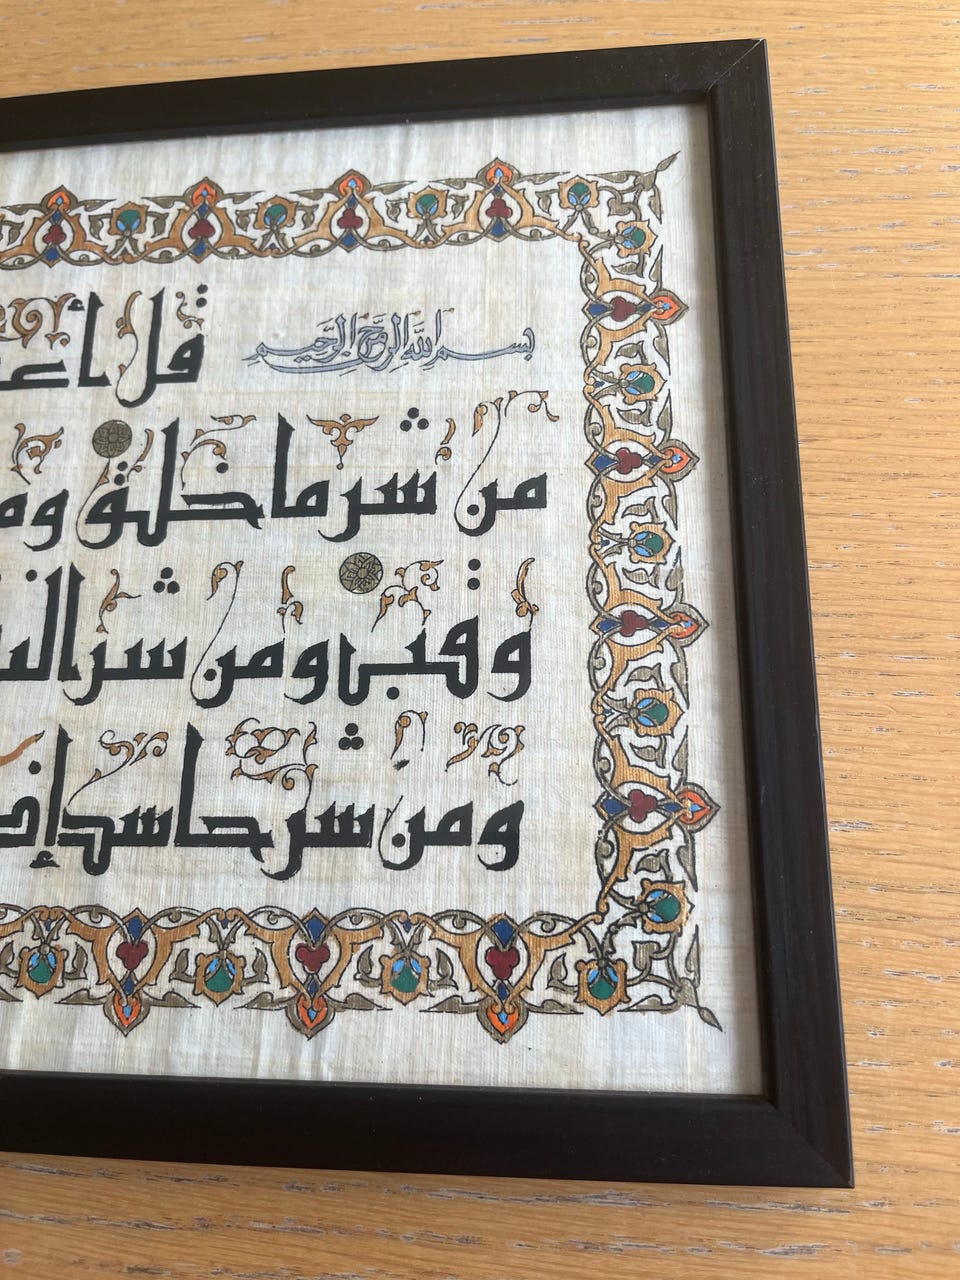 بسم الله الرحمن الرحيم قل
من شر ما خلق
وقب ومن شر
ومن شر حاسد